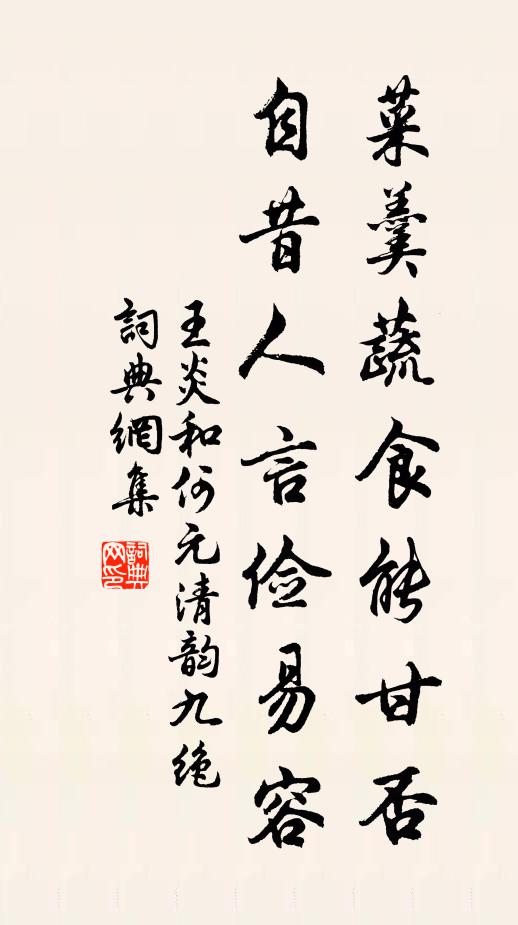 菜羹蔬食能甘否
自昔人言俭易容
王炎和何元清韵九绝
詞典網集
詞典网印